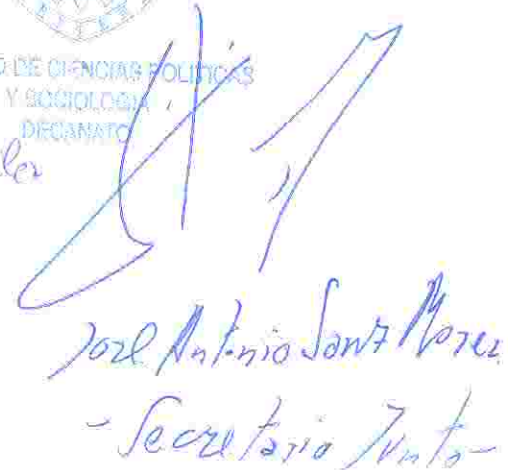 DE CIENCIAS POLITICAS
Y SOCIOLOGIA
DECANATO
José Antonio Sanz Moreno
- Secretario Junta -